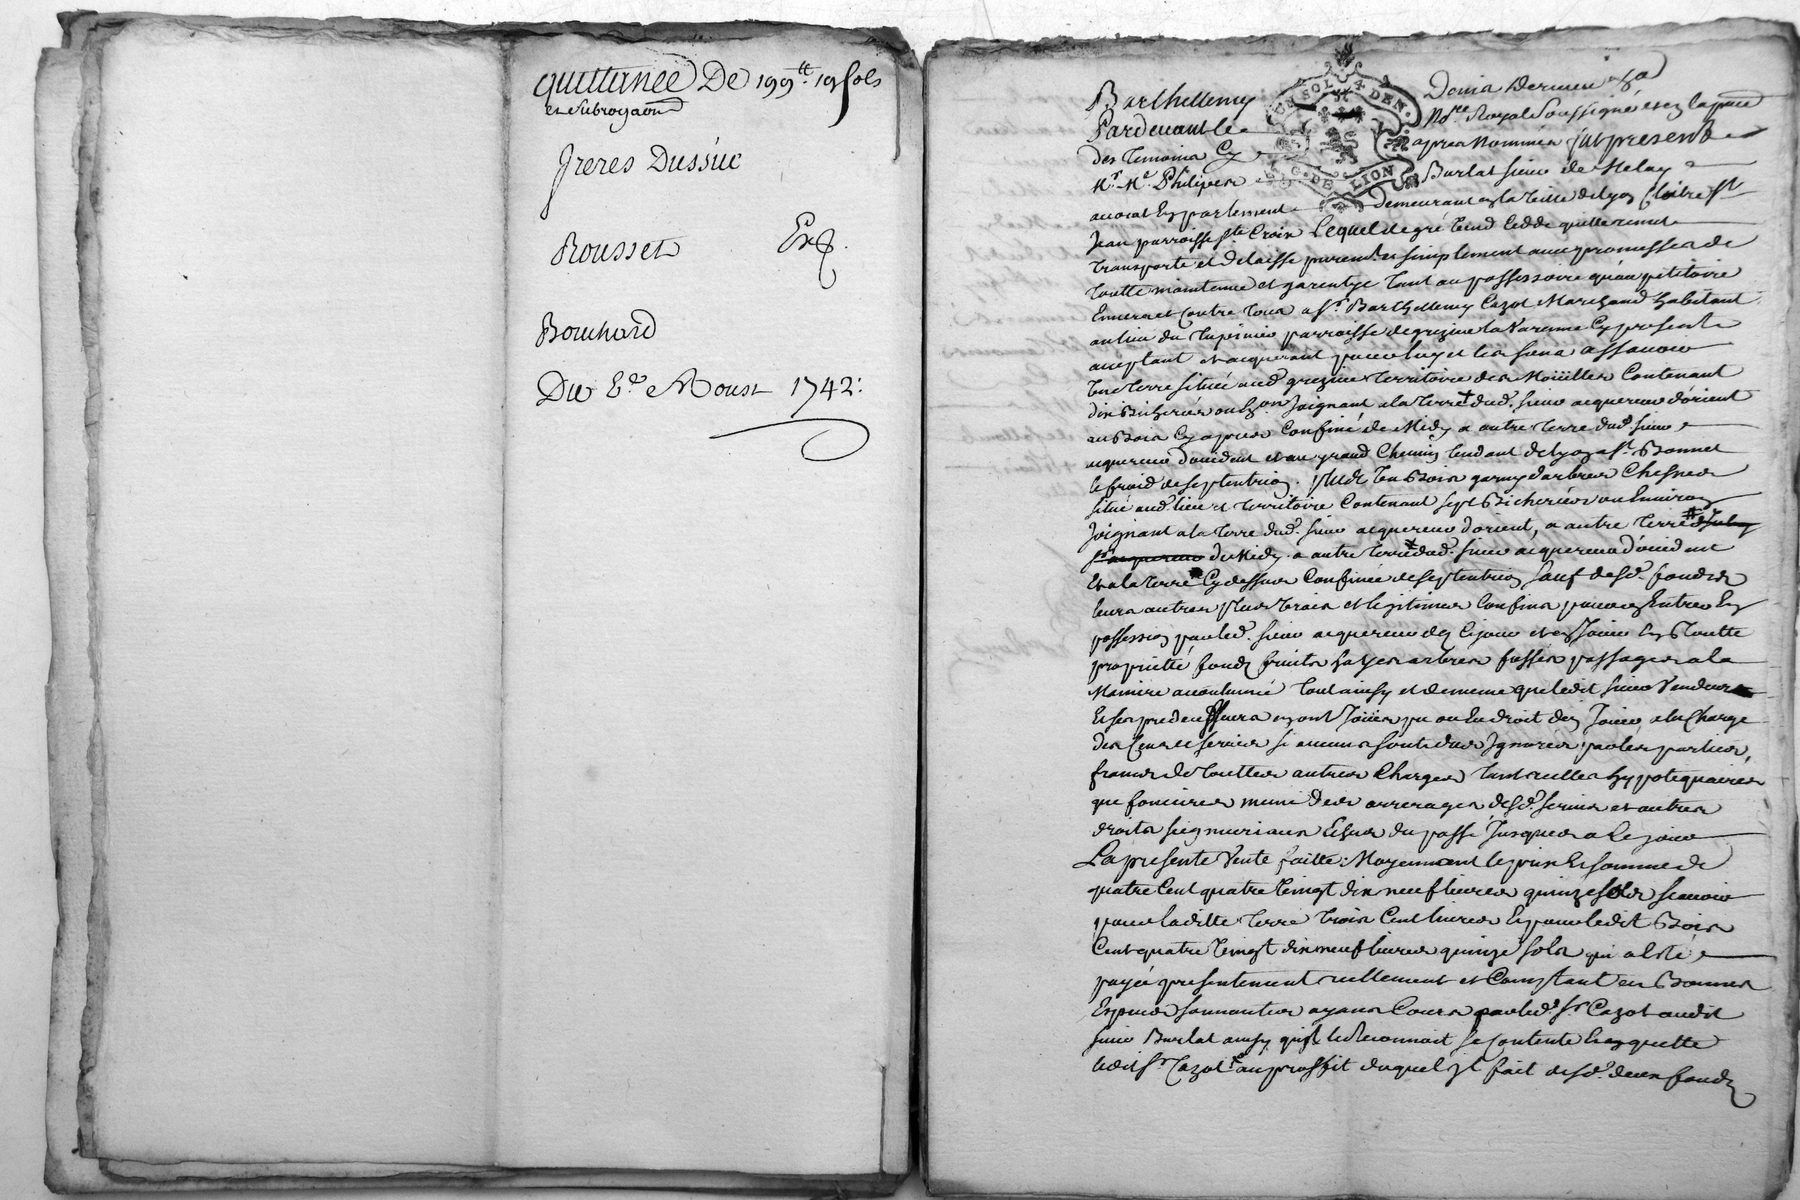 quittance De 199tt. 19 sols
et subrogaon
freres Dussuc
Rousset Exp.
Bouchard
Du 2e. Aoust 1742:
UN SOL 4 DEN.
G. DE LION
Barthellemy Denis Dernieu
Pardevant le No.re Royal soussigné et en la pnce
des temoins Cy apres nommés fut present
Mr. Me. Philipes Burlat sieur de Melay
avocat En parlement demeurant en la ville de lyon Cloitre St
Jean parroisse Ste Croix Lequel de gré vend cedde quitte remet
transporte et delaisse purement et simplement avec promesse de
toutte maintenue et garentye tant au possessoire qu'au petitoire
Envers et Contre tous a Sr. Barthellemy Cazot Marchand habitant
au lieu du parroisse de grezieu la Varenne Cy present
aceptant et acquerant pour luy et les siens assavoir
Une terre située aud. grezieu territoire des Moüilles Contenant
dix Bicherées ou Eon. Joignant a la terre dud. sieur acquereur d'orient
au Bois Cy apres Confiné de Midy a autre terre dud. sieur
acquereur d'occident et au grand Chemin tendant de lyon a St. Bonnet
le froid de septentrion. Plus Un Bois garny d'arbres Chesnes
situé aud. lieu et territoire Contenant sept Bicherées ou Environ
Joignant a la terre dud. sieur acquereur d'orient, a autre terre
de Midy. a autre terre dud. sieur acquereur d'occident
Et a la terre Cy dessus Confinée de septentrion sauf desd. fonds
leurs autres plus vrais et legitimes Confins pour en Entrer En
possession par led. sieur acquereur des Ce jour et en Jouir En toutte
proprietté fonds fruits hayes arbres fosses passages a la
Maniere accoutumée tout ainsy et de meme que ledit sieur Vendeur
Et ses predecesseurs en ont Joüis pu ou Eu droit d'en Jouir a la Charge
des Cens et servis si aucuns sont dus Ignorés par les parties,
francs de touttes autres Charges tant reelles hypotequaires
que foncieres meme des arrerages desd. servis et autres
droits seigneuriaux Echus du passé Jusques a Ce jour
La presente Vente faitte: Moyennant le prix Et somme de
quatre Cent quatre Vingt dix neuf livres quinze sols scavoir
pour laditte terre trois Cent livres Et pour ledit Bois
Cent quatre Vingt dix neuf livres quinze sols qui a Eté
payée presentement reellement et Comptant en Bonnes
Especes sonnantes ayans Cours par led. Sr. Cazot audit
sieur Burlat ainsy qu'il le Reconnoit se Contente En quitte
ledit Sr. Cazot au proffit duquel Il fait desd. deux fonds